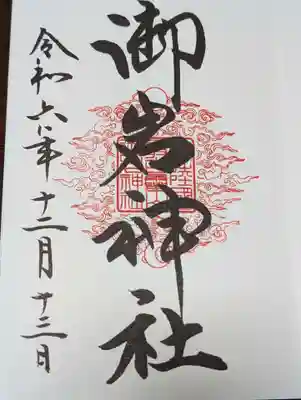 御岩神社
令和六年十二月十三日